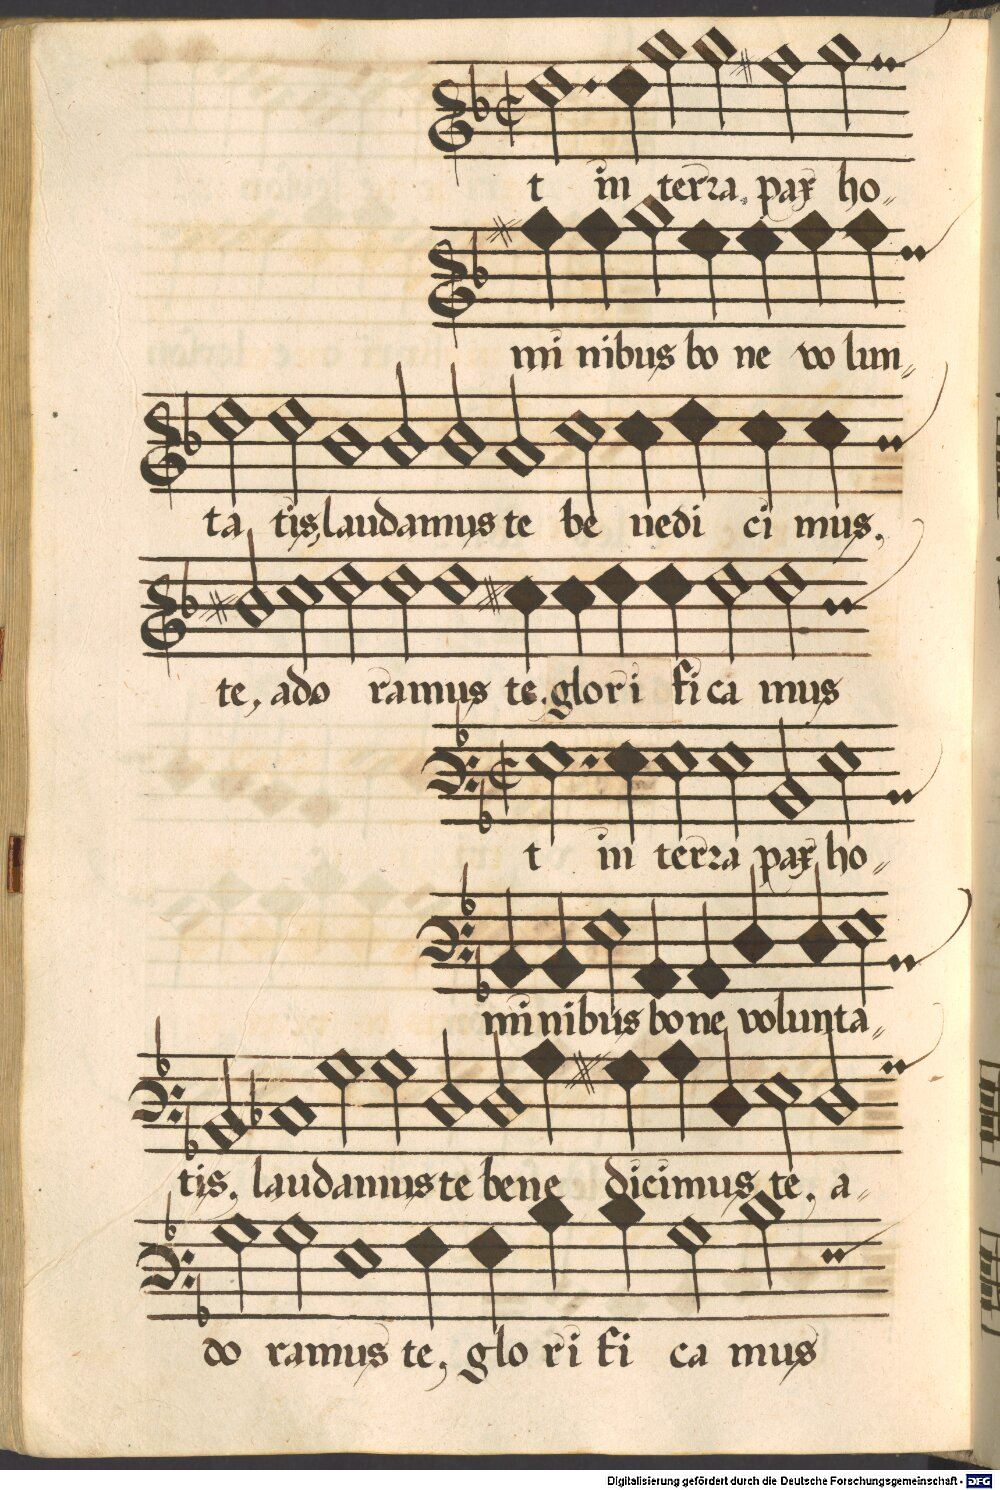 t in terra pax ho„
mi nibus bo ne vo lun„
ta tis, laudamus te be nedi ci mus,
te, ado ramus te. glori fi ca mus
t in terra pax ho„
mi nibus bo ne volunta„
tis. laudamus te bene dicimus te, a„
do ramus te, glo ri fi ca mus
Digitalisierung gefördert durch die Deutsche Forschungsgemeinschaft - DFG